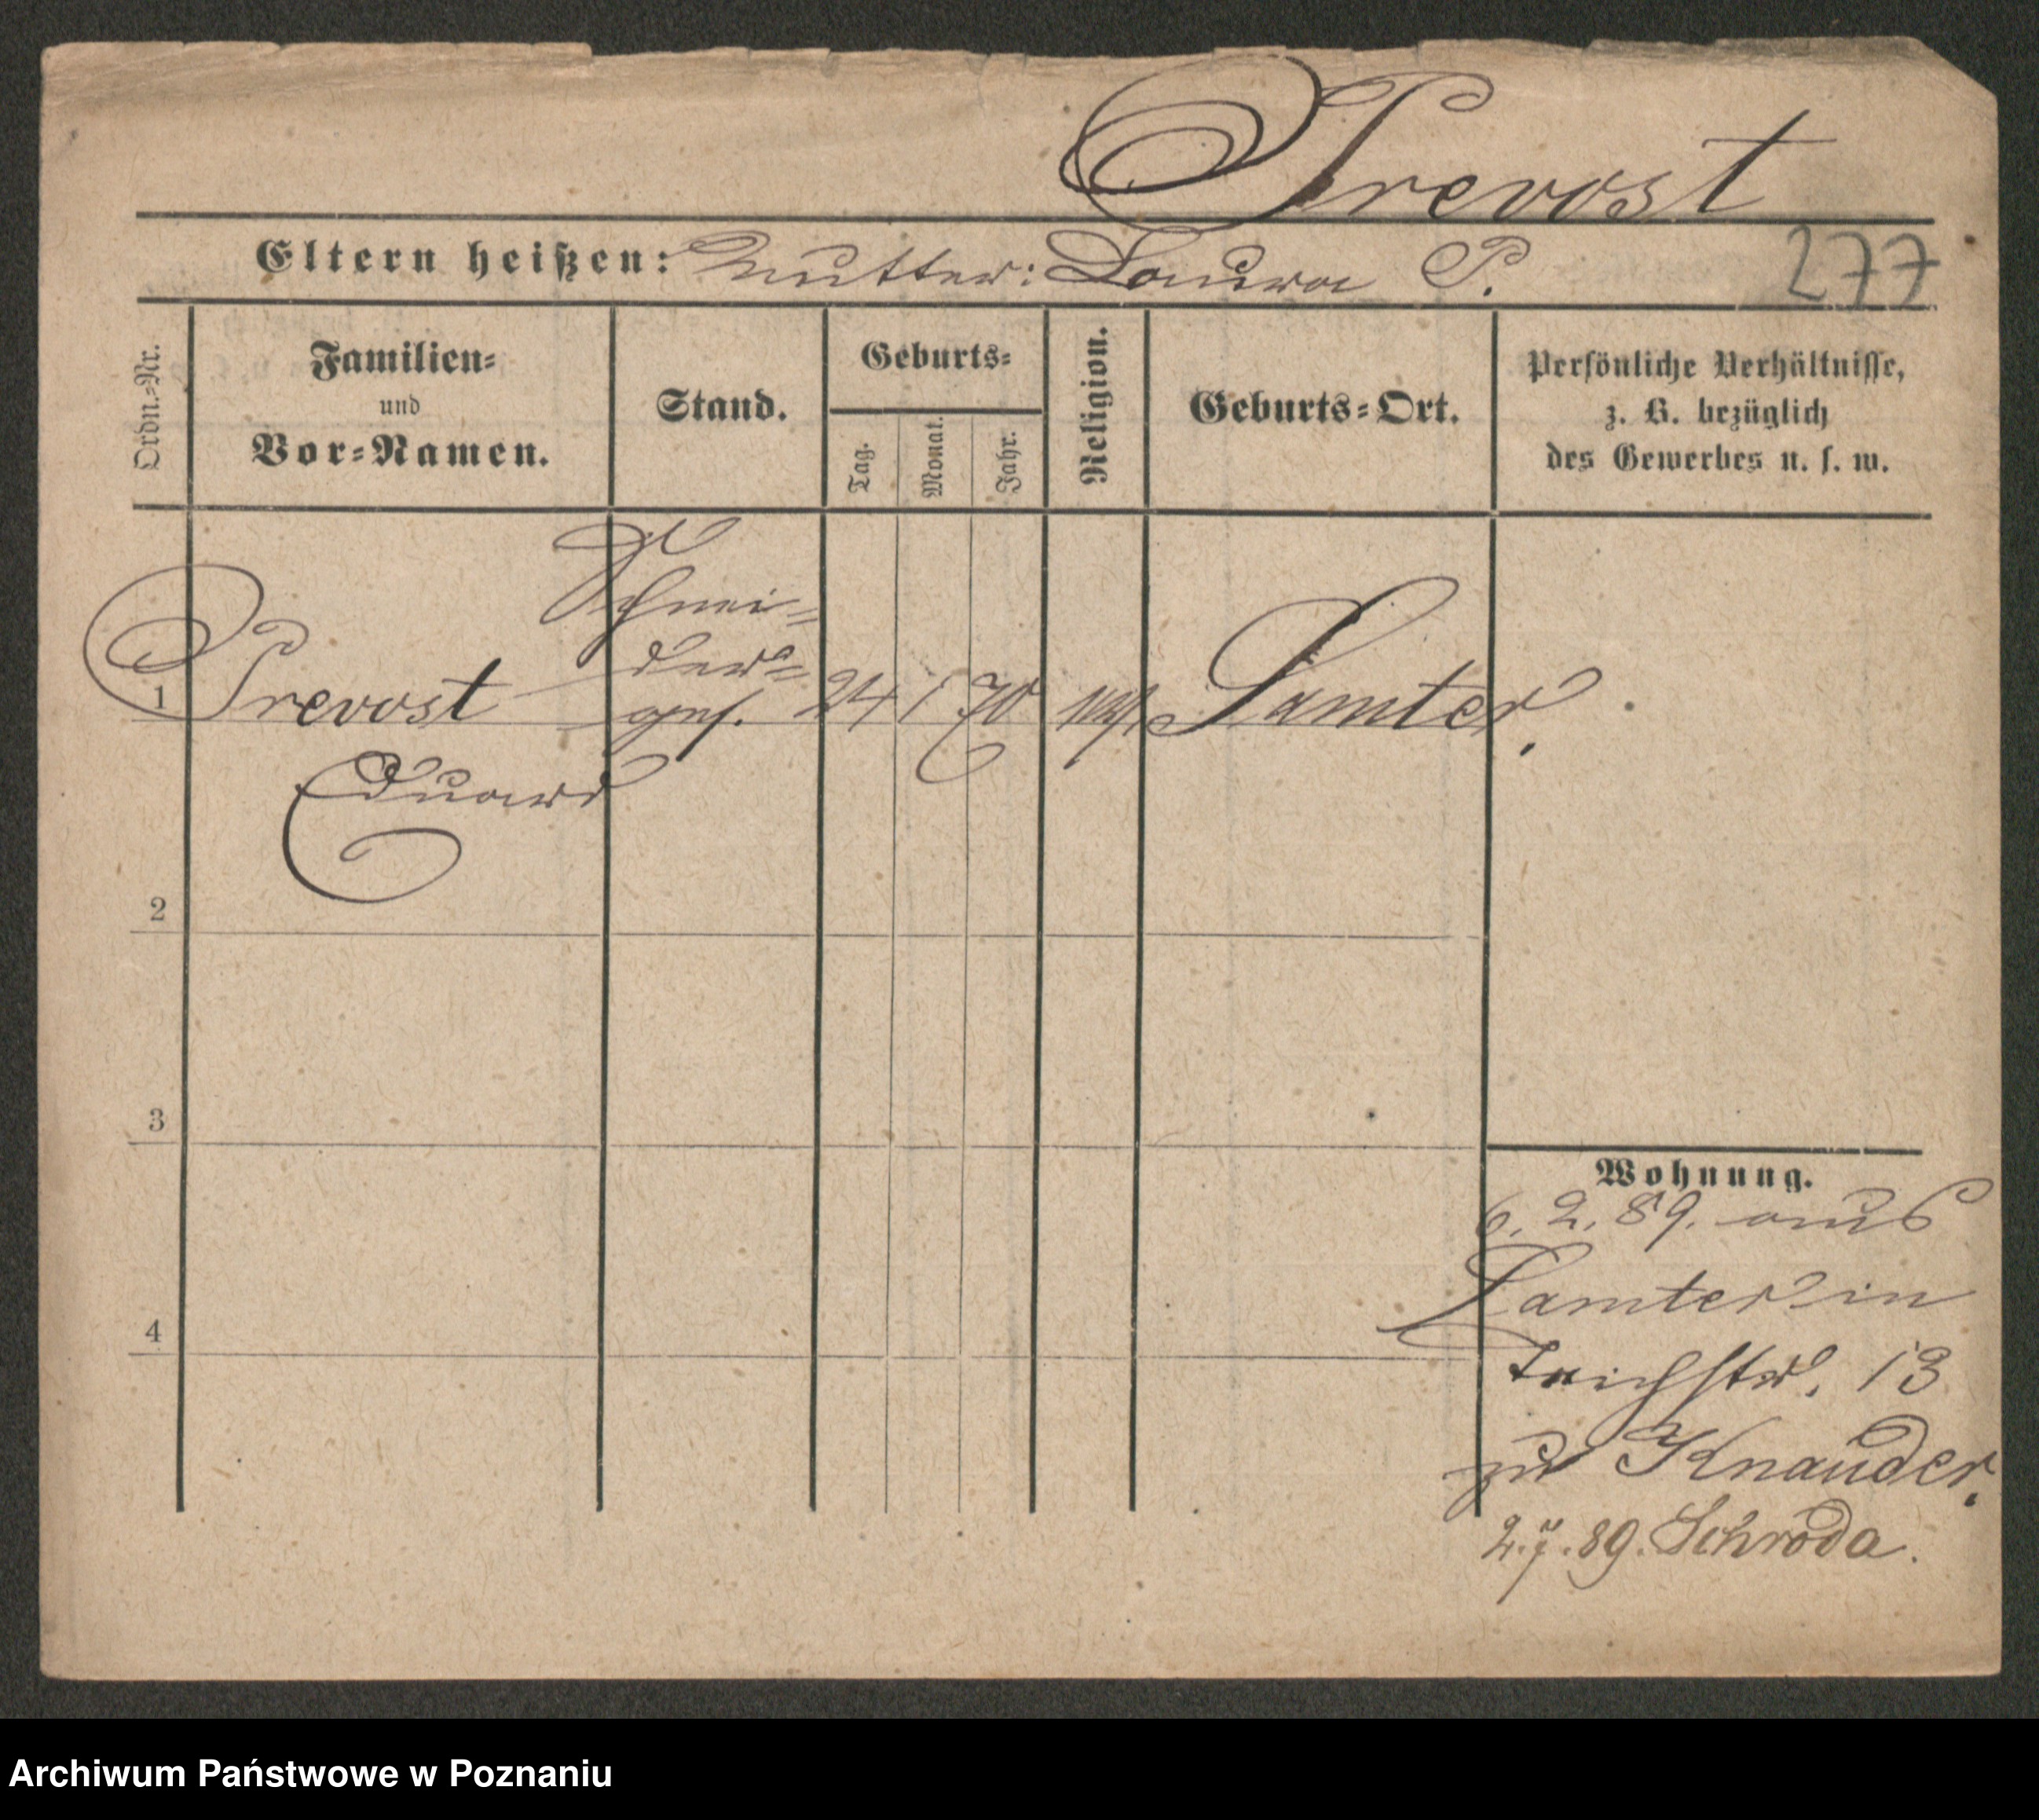 Prevost
Eltern heißen: Mutter: Laura P. 277
Ordn.-Nr.
Familien-
und
Vor-Namen.
Stand.
Geburts-
Tag.
Monat.
Jahr.
Religion.
Geburts-Ort.
Persönliche Verhältnisse,
z. B. bezüglich
des Gewerbes u. s. w.
Schnei-
der-
1 Prevost ges. 24 1 70 Samter.
Eduard
2
3
4
Wohnung.
6. 2. 89. aus
Samter in
Teichstr. 13
zu Knauder.
2. 7. 89. Schroda.
Archiwum Państwowe w Poznaniu